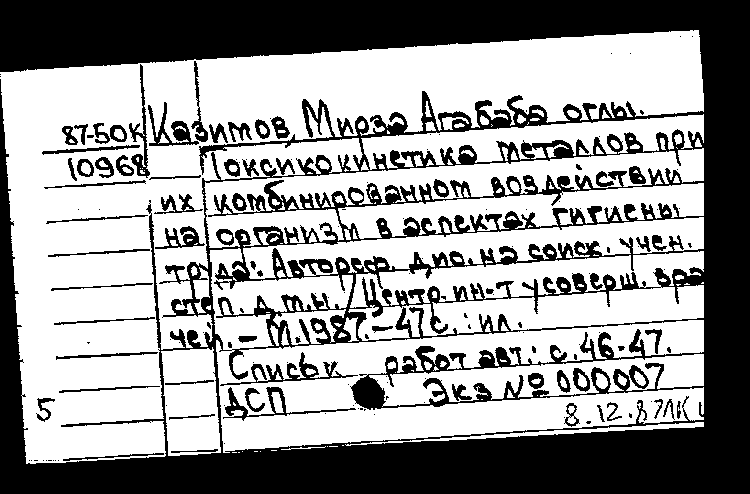 87-50К Казимов, Мирза Агабаба оглы.
10968 Токсикокинетика металлов при
их комбинированном воздействии
на организм в аспектах гигиены
труда: Автореф. дис. на соиск. учен.
степ. д.м.н. /Центр. ин-т усоверш. вра
чей. – М. 1987. – 47 с. : ил.
Список работ авт.: с. 46-47.
5 ДСП Экз № 000007
8.12.87